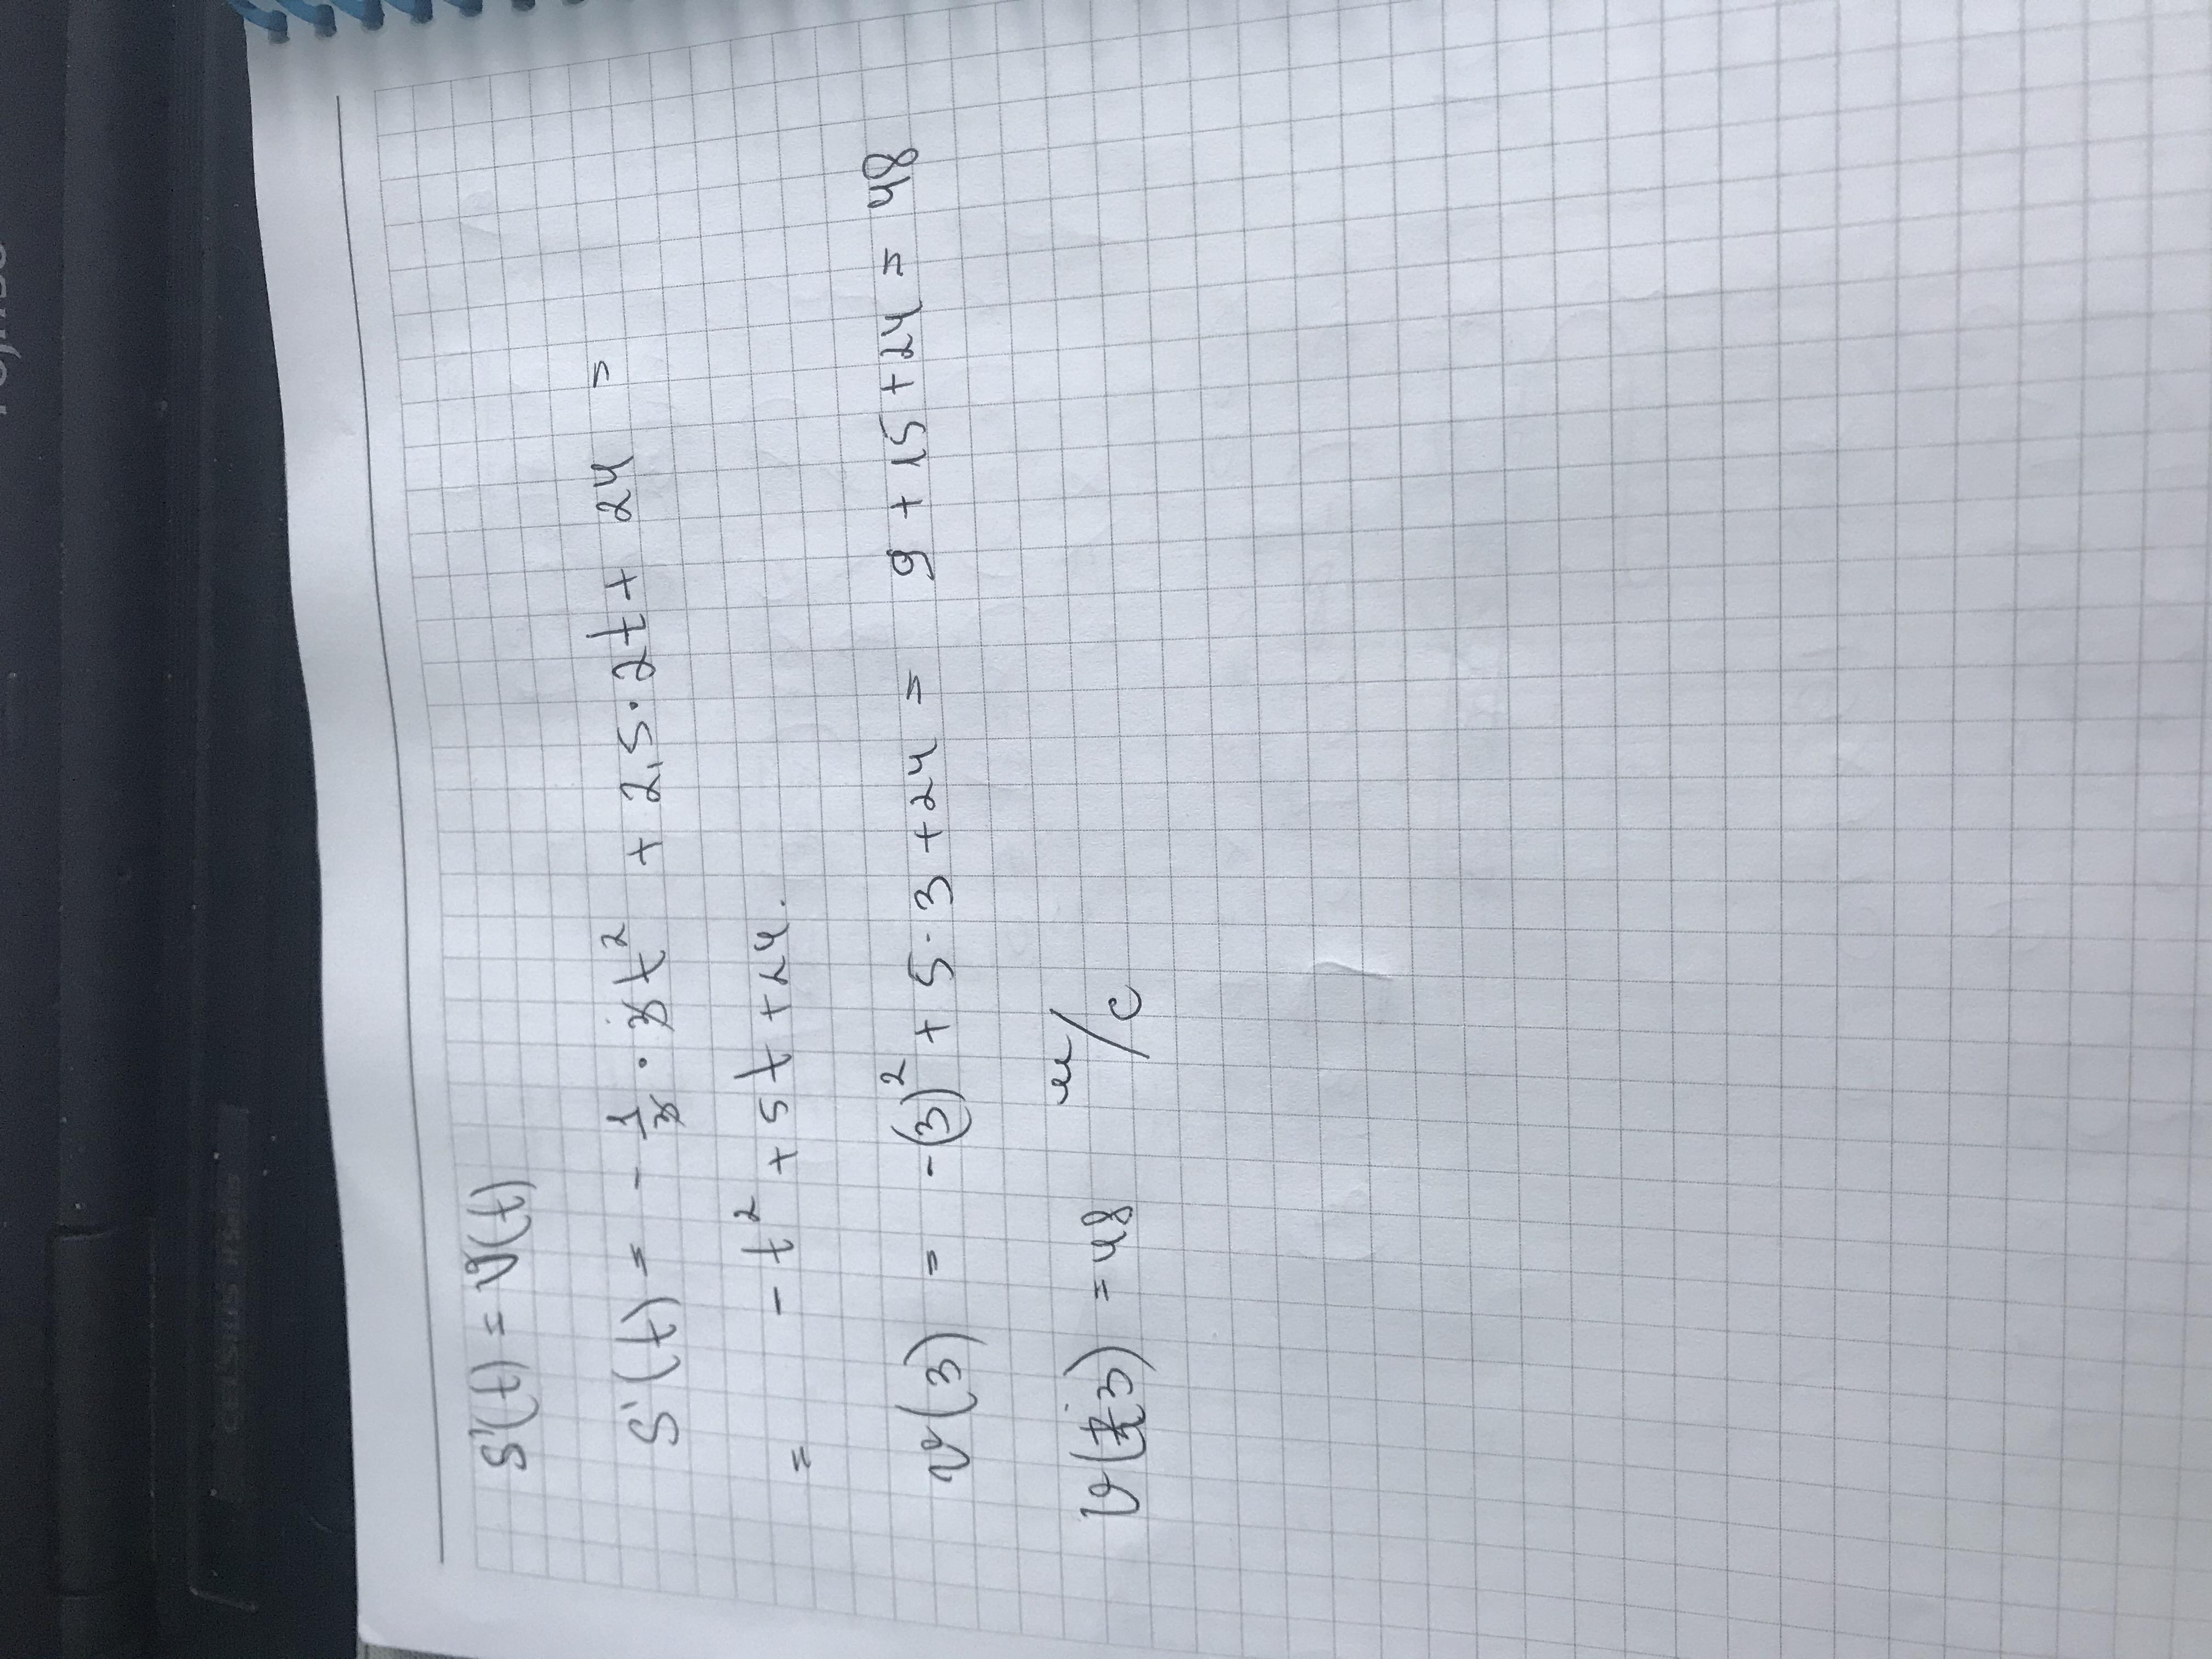 S'(t) = v(t)
S'(t) = - 1/3 · 3t² + 2,5 · 2t + 24 =
= - t² + 5t + 24.
v(3) = -(3)² + 5 · 3 + 24 = 9 + 15 + 24 = 48
v(3) = 48 м/с